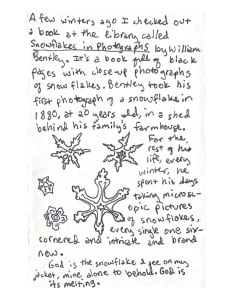 A few winters ago I checked out
a book at the library called
Snowflakes in Photographs by William
Bentley. It's a book full of black
pages with close-up photographs
of snowflakes. Bentley took his
first photograph of a snowflake in
1880, at 20 years old, in a shed
behind his family's farmhouse.
For the
rest of his
life, every
winter, he
spent his days
taking microsc-
opic pictures
of snowflakes,
every single one six-
cornered and intricate and brand
new.
God is the snowflake I see on my
jacket, mine alone to behold. God is
its melting.